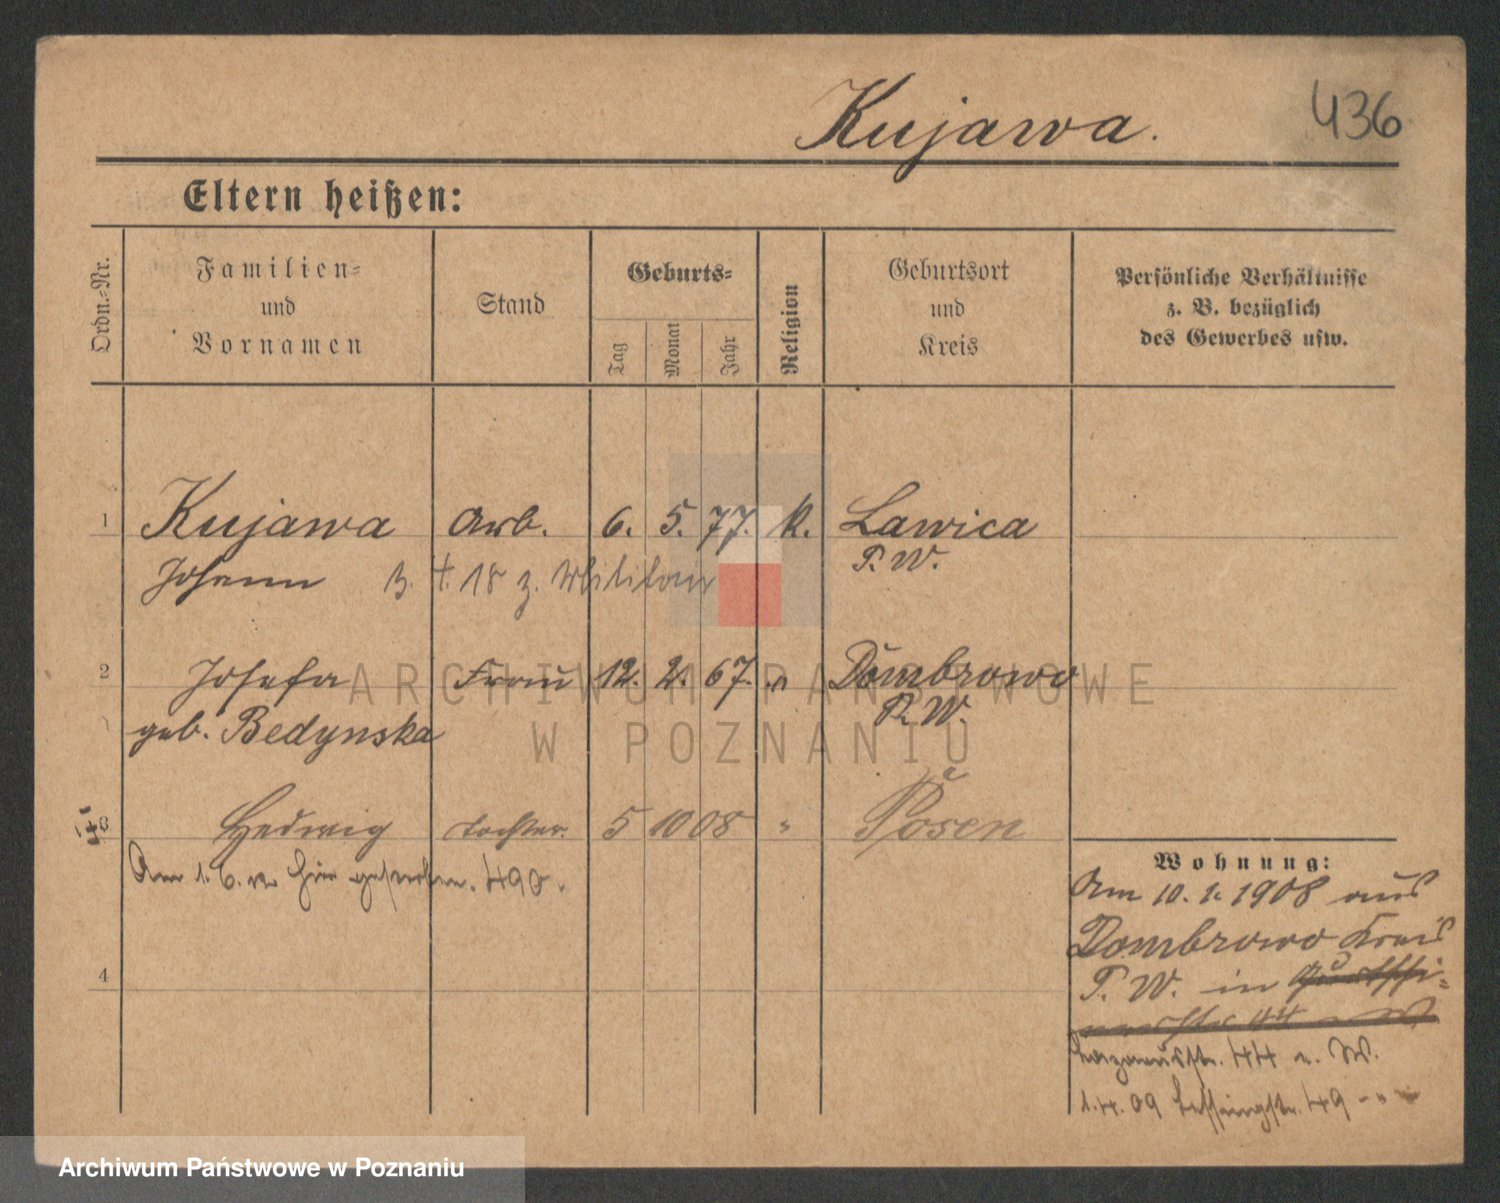 Kujawa.
436
Eltern heißen:
Ordn.-Nr.
Familien-
und
Vornamen
Stand
Geburts-
Tag
Monat
Jahr
Religion
Geburtsort
und
Kreis
Persönliche Verhältnisse
z. B. bezüglich
des Gewerbes usw.
1 Kujawa Arb. 6. 5. 77. k. Lawica
Johann z. Militär P. W.
2 Josefa Frau 12. 2. 67. " Dombrowo
geb. Bedynska P. W.
3 Hedwig Tochter. 5 10 08 " Posen
Am 1. 6. hier gestorben. 490.
4
Wohnung:
Am 10. 1. 1908 aus
Dombrowo Kreis
P. W. in
Lazarusstr. 44 a. W.
1. 4. 09 Lessingstr. 49 - " -
ARCHIWUM PAŃSTWOWE
W POZNANIU
Archiwum Państwowe w Poznaniu